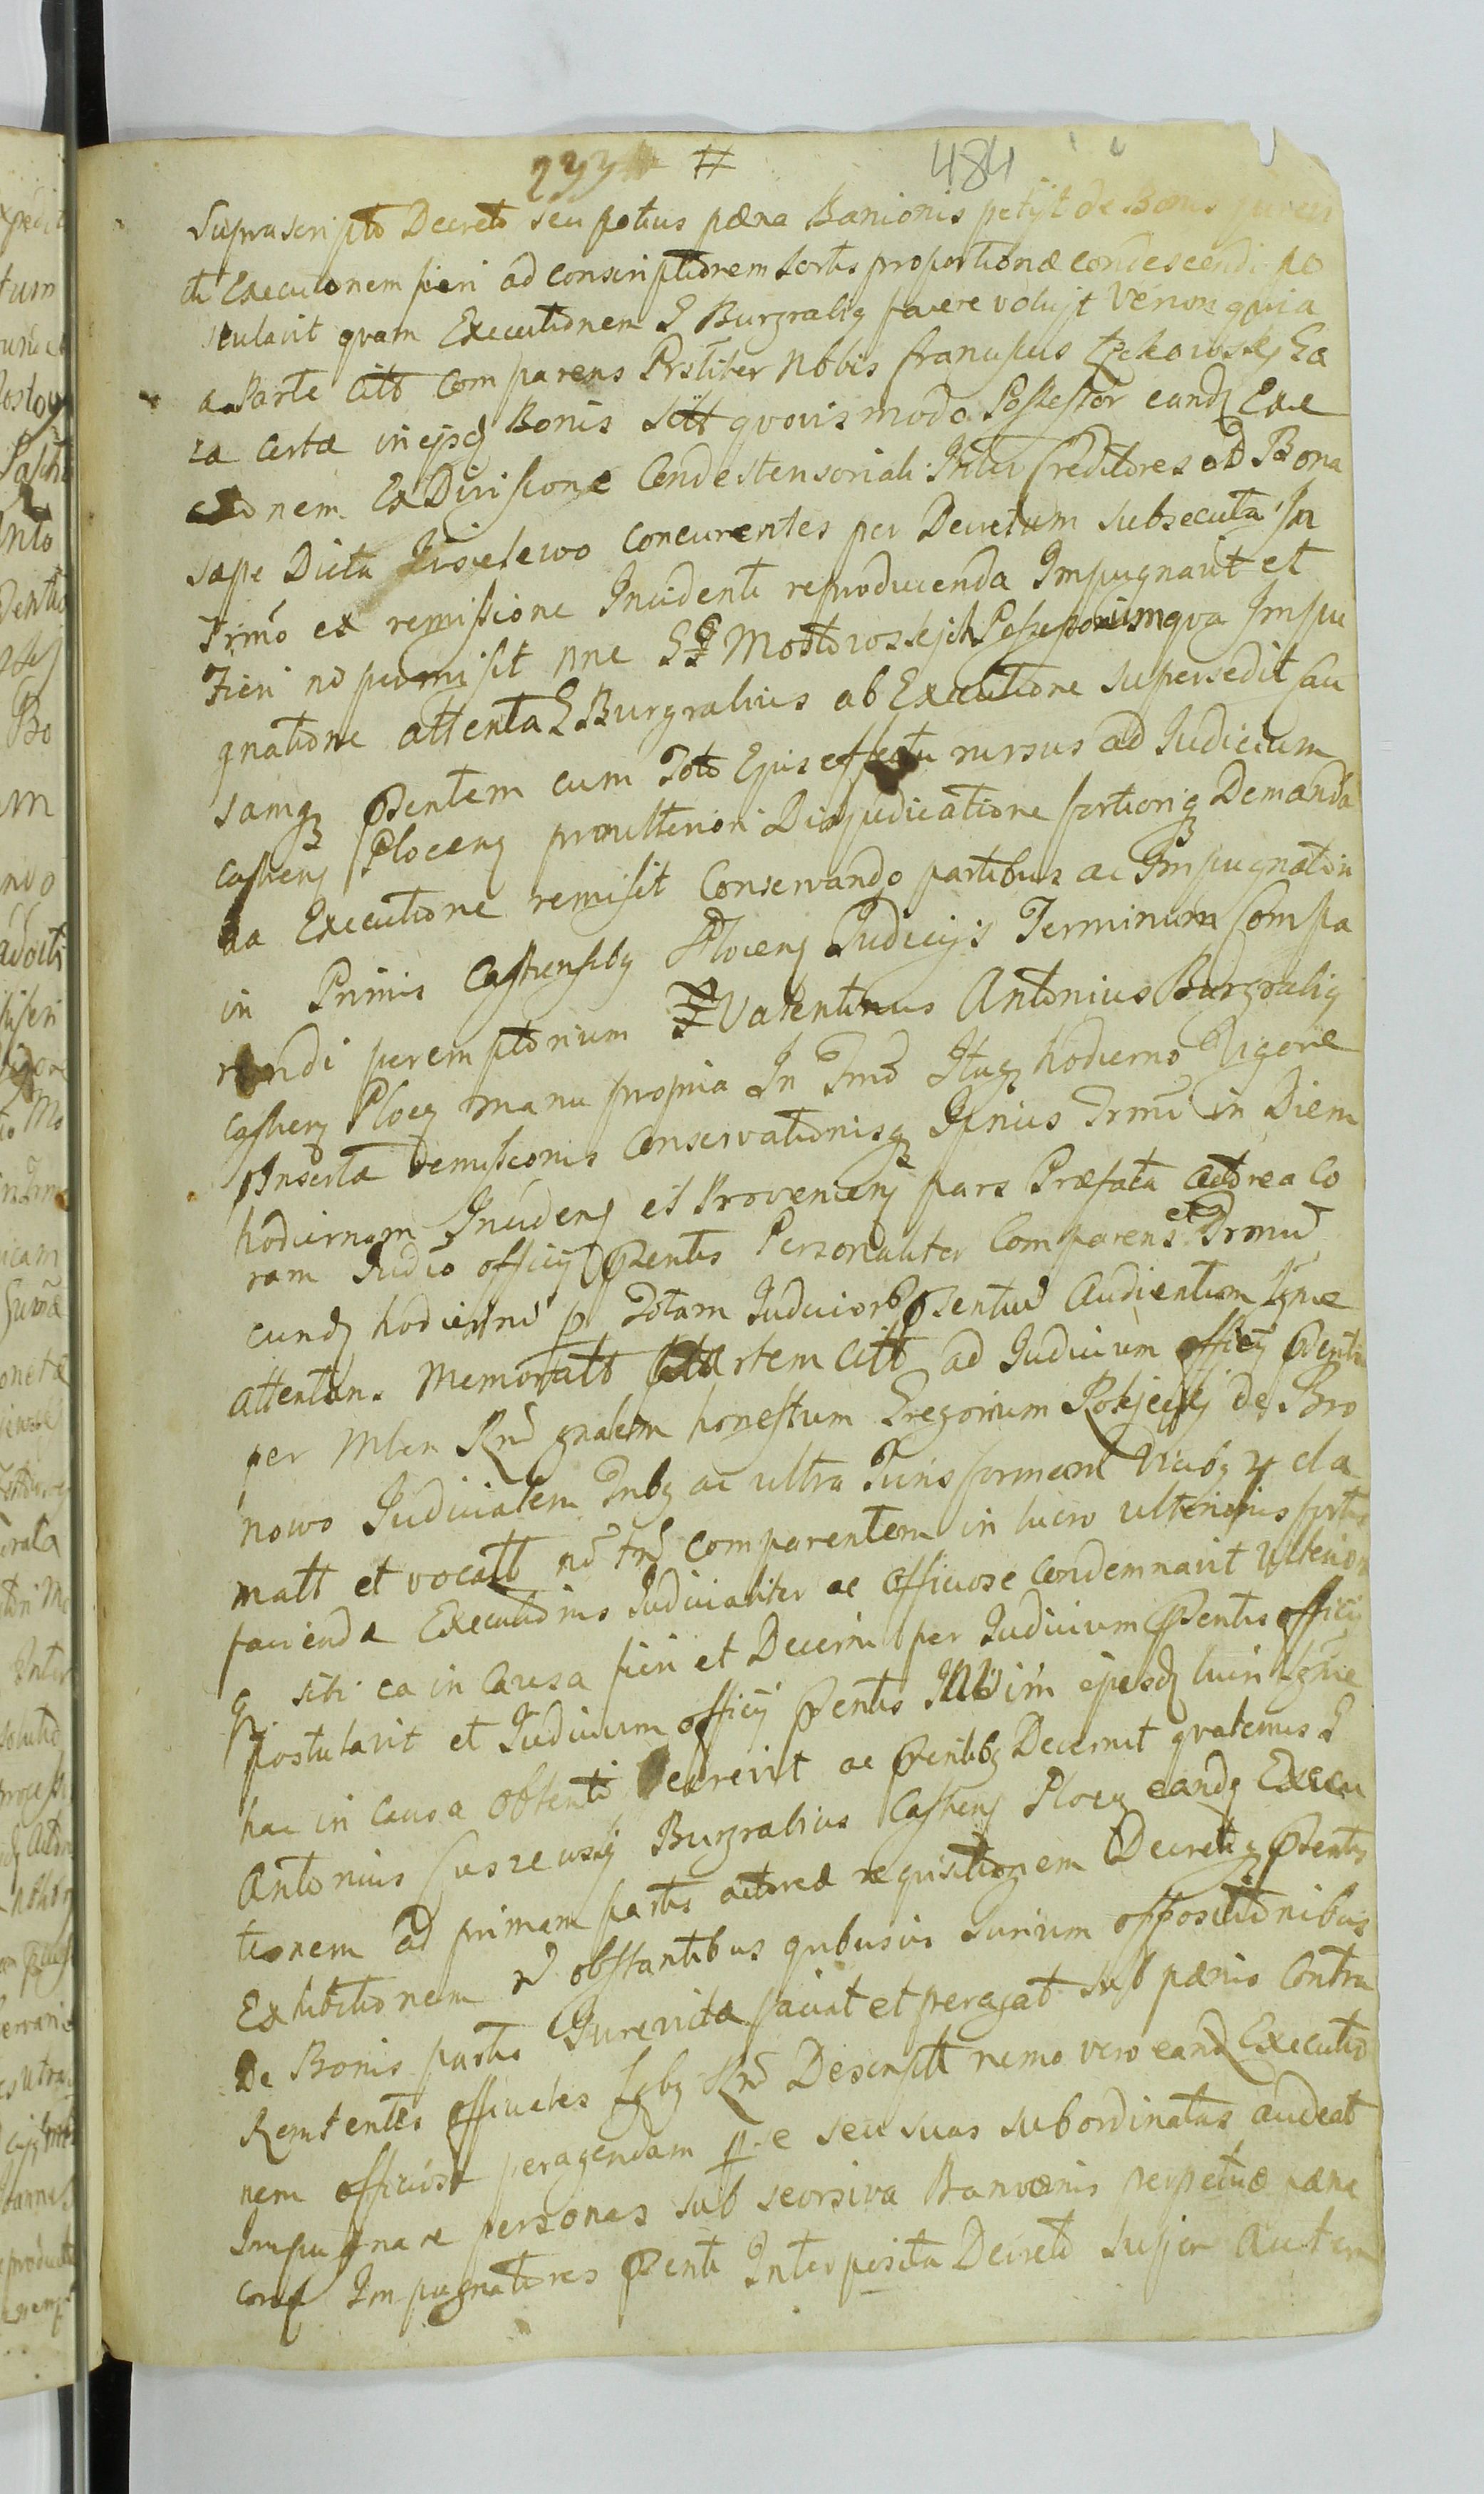 233 #
484
Suprascripto Decreto seu potius pæna Banionis petijt de Bonis
ti Executionem fieri ad conscriptionem sortis proportionæ condescendi po
stulavit quam Executionem G Burgrabig facere voluit Verum quia
a Parte citt Comparens Psliter Nobilis Franciscus Ex
ra certa in ejsd Bonis Sitt quovis modo Possessor eandz Exe
ctionem Ex Divisione Condestensoriali Inter Creditores ad Bona
sæpe Dicta concurentes per Decretum subsecuta In
Trmo ex remissione Incidenti reproducenda Impugnavit et
Fieri nō permisit nne GG qva Impu
gnatione attenta G Burgrabius ab Executione supersedit Cau
samqz Psentem cum Toto Ejus effectu rursus ad Judicium
Castrenj Plocenj pro ulteriori Diajudicatione fortioriqz Demanda
da Executione remisit Conservando partibus ac Impugnatori
in Primis Castrensibq Plocenj Judicijs Terminum Compa
rendi peremptorium Valentinus Antonius Burgrabig
Castrenj Plocq manu propria In Trmō Itaqz hodierno Vigore
Pinserta Remissionis Conservationisqz Ipsius Trmi in Diem
hodiernam Incidenj et Provenienj pars Præfata actorea Co
ram Judio officij Psentis Personaliter Comparens et Trmū
eundz hodiernū p Totam Judiciorō Psentiū Audientiam Lgnie
attentan. Memoratt Partem Citt ad Judicium officij Psentis
per Mlem Rnī gnalem honestum Gregorium de Bro
nowo Judicialem Tnbq ac ultra Juris formam Vicibq 4 cla
matt et vocatt nō tnī comparentem in lucro ulterioris fortis
facienda Executionis Judicialiter ac officiose condemnavit Ulterior
q sibi ea in Causa fieri et Decerni per Judicium Psentis officij
postulavit et Judicium officij Psentis in ejusd lucri Lgnie
hac in causa obtenti Decrevit ac Psentibq Decernit quatenus G
Antonius Burgrabius Castrenj Plocq eandq Execu
tionem ad primam partis actoreæ requisitionem Decretiqz Psentis
Exhibitionem nō obstantibus quibusvis Jurium oppositionibus
De Bonis partis Jurevicta faciat et peragat sub pænis Contra
Remtentes officiales Lgbq Rnī Descriptt nemo vero eandz Executio
nem officiost peragendam p se seu suas subordinatas audeat
Impugnare personas sub seorsiva Banionis perpetuæ pæna
coraf Impugnatores Psenti Interposita Decreto super Autem